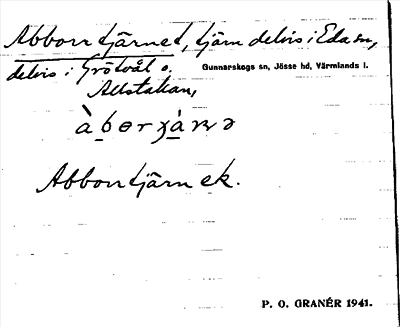 Abborrtjärnet, tjärn delvis i Eda sn,
delvis i Grötvål o. Gunnarskogs sn, Jösse hd, Värmlands l.
Allstakan,
Abborrtjärn ek.
P. O. GRANÉR 1941.